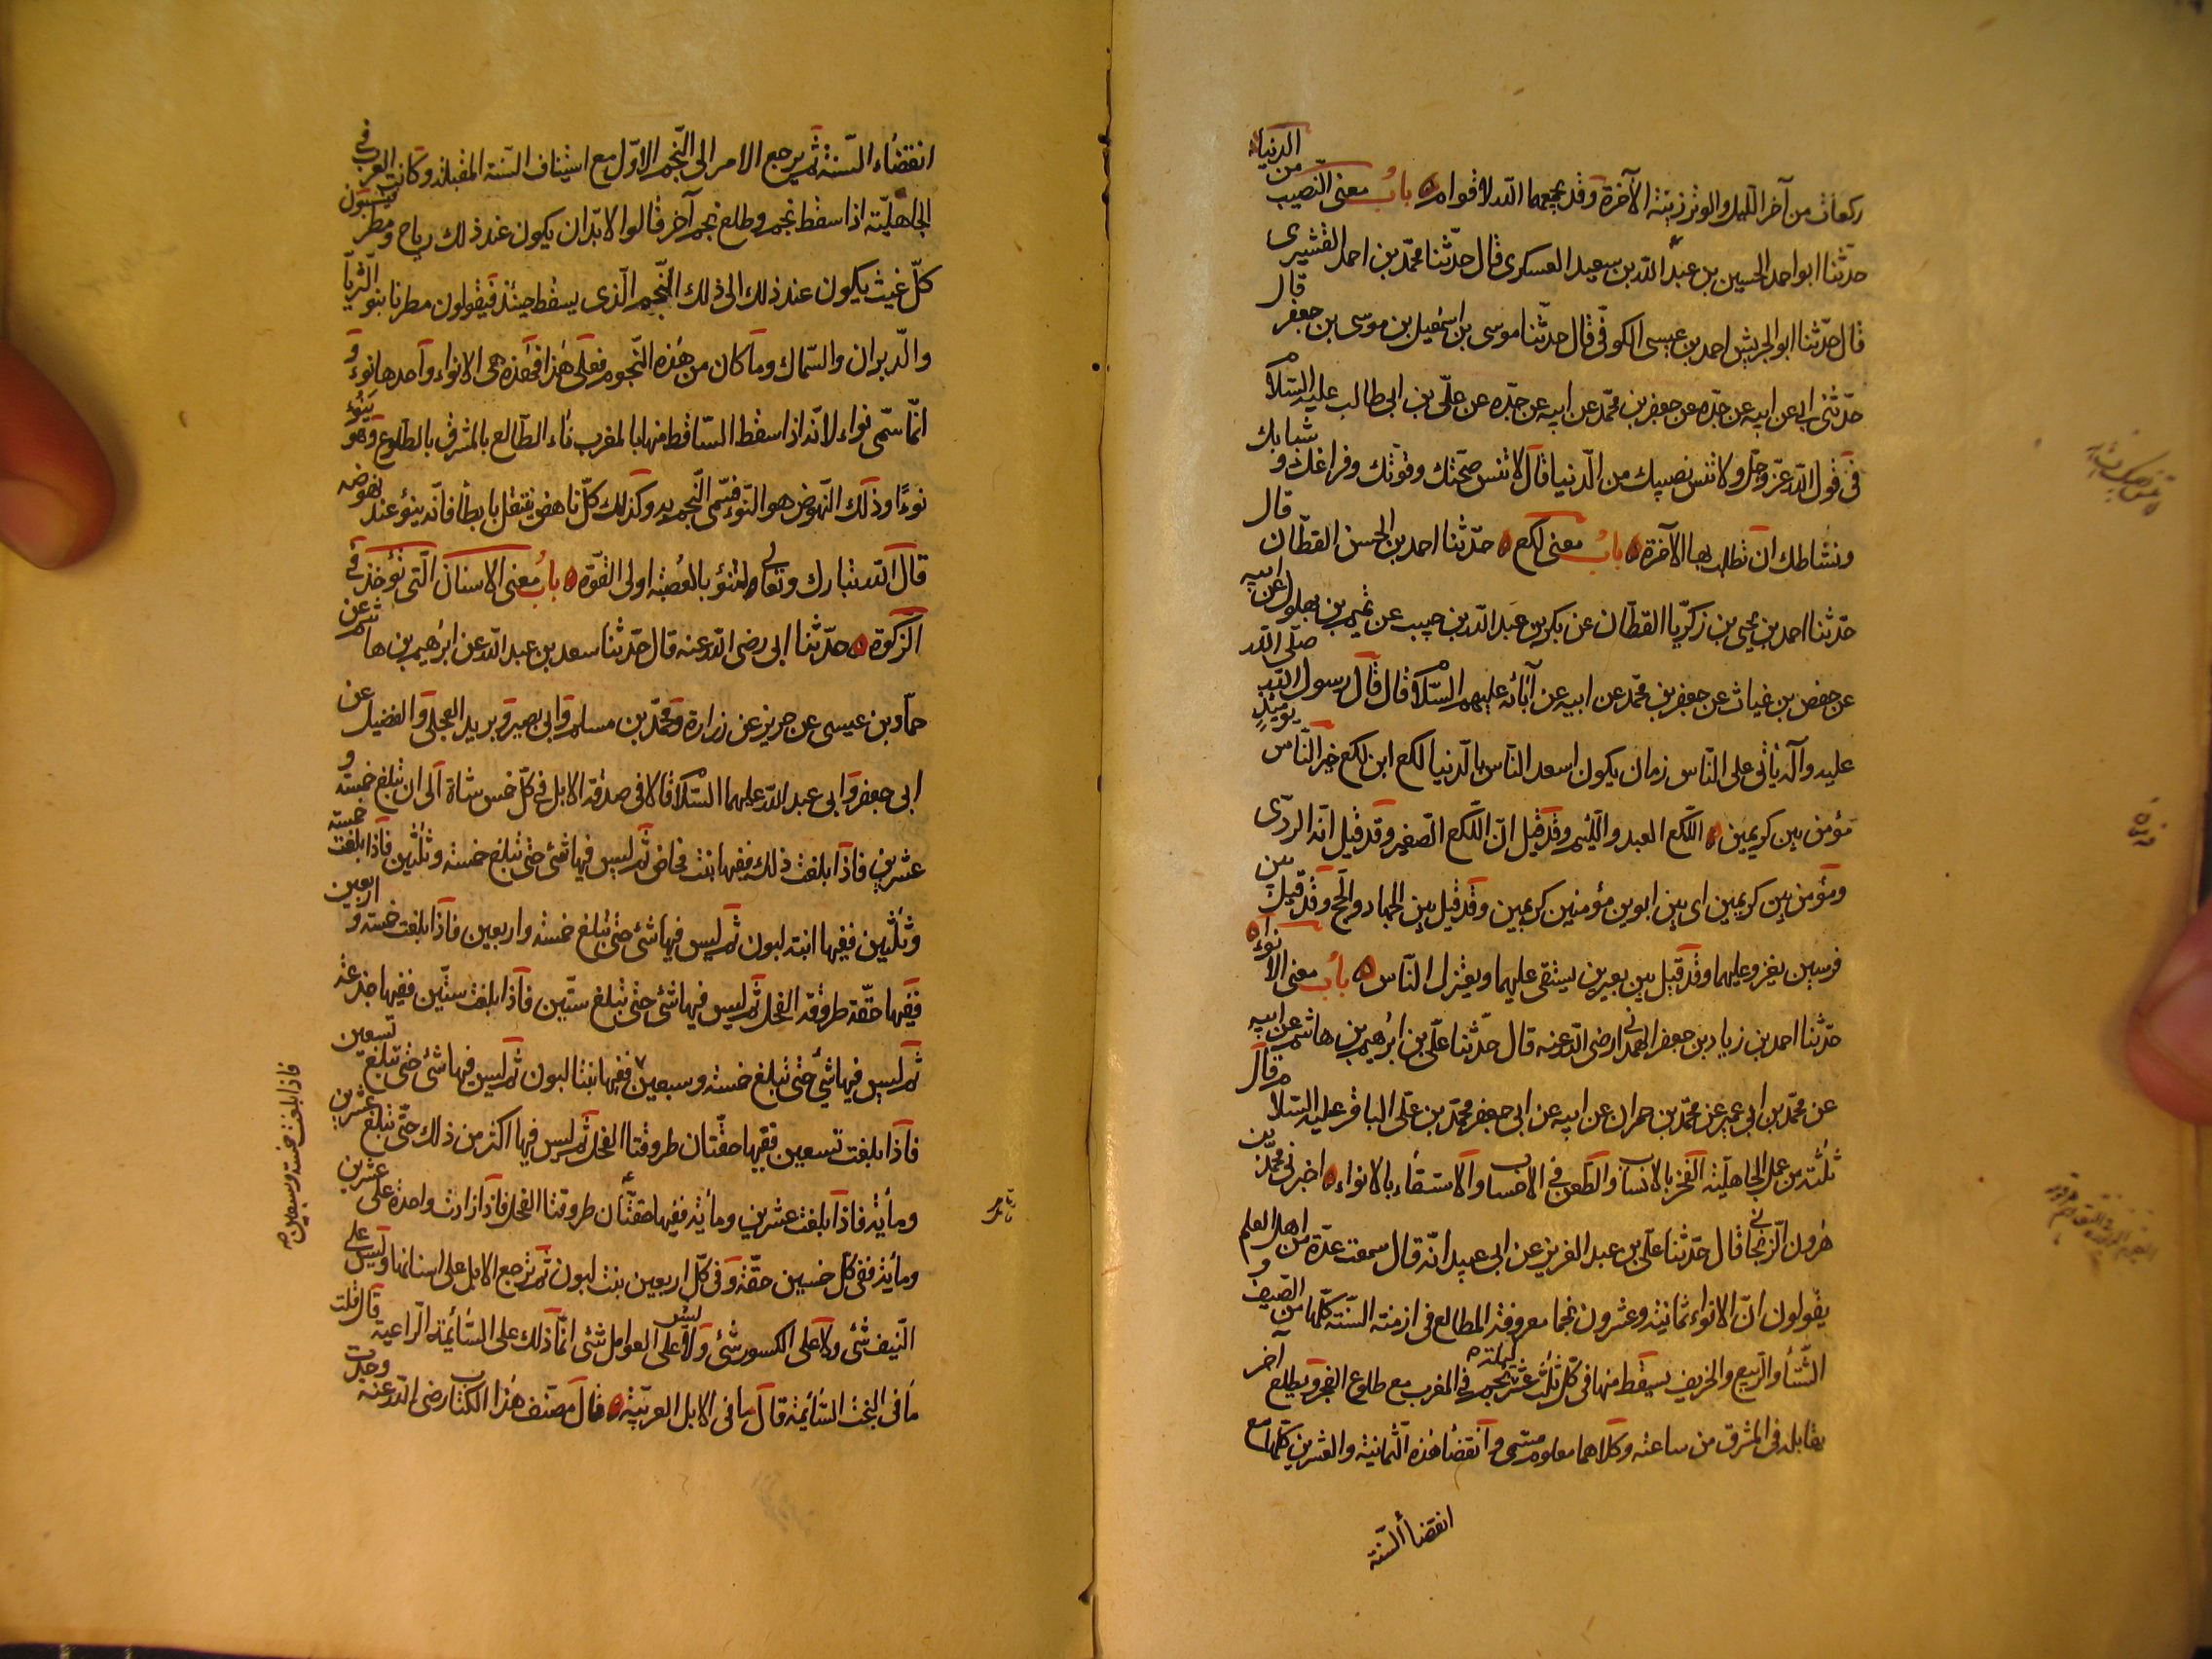 ركعات من آخر الليل والوتر زينة الآخرة وقد يجمعهما الله لاقوام باب معنى النصيب من الدنيا
حدثنا ابو احمد الحسين بن عبد الله بن سعيد العسكرى قال حدثنا محمد بن احمد القشيرى
قال حدثنا ابو الحريش احمد بن عيسى الكوفى قال حدثنا موسى بن اسمعيل بن موسى بن جعفر قال
حدثنى ابى عن ابيه عن جده عن جعفر بن محمد عن ابيه عن جده عن على بن ابى طالب عليه السلام
فى قول الله عز وجل ولا تنس نصيبك من الدنيا قال لا تنس صحتك وقوتك وفراغك و شبابك
ونشاطك ان تطلب بها الآخرة باب معنى لكع حدثنا احمد بن الحسن القطان قال
حدثنا احمد بن يحيى بن زكريا القطان عن بكر بن عبد الله بن حبيب عن تميم بن بهلول عن ابيه
عن حفص بن غياث عن جعفر بن محمد عن ابيه عن آبائه عليهم السلام قال قال رسول الله صلى الله
عليه وآله يأتى على الناس زمان يكون اسعد الناس بالدنيا لكع ابن لكع خير الناس يومئذ
مؤمن بين كريمين اللكع العبد واللئيم وقد قيل ان اللكع الصغير وقد قيل انه الردى
ومؤمن بين كريمين اى بين ابوين مؤمنين كريمين وقد قيل بين الجهاد والحج وقد قيل بين
فرسين يغزو عليهما وقد قيل بين بعيرين يستقى عليهما ويعتزل الناس باب معنى الانواء
حدثنا احمد بن زياد بن جعفر الهمدانى رضى الله عنه قال حدثنا على بن ابرهيم بن هاشم عن ابيه
عن محمد بن ابى عمير عن محمد بن حمران عن ابيه عن ابى جعفر محمد بن على الباقر عليه السلام قال
ثلثة من عمل الجاهلية الفخر بالانساب والطعن فى الاحساب والاستسقاء بالانواء اخبرنى محمد بن
هرون الزنجانى قال حدثنا على بن عبد العزيز عن ابى عبيد انه قال سمعت عدة من اهل العلم
يقولون ان الانواء ثمانية وعشرون نجما معروفة المطالع فى ازمنة السنة كلها من الصيف و
الشتاء والربيع والخريف يسقط منها فى كل ثلث عشر ليلة نجم فى المغرب مع طلوع الفجر ويطلع آخر
يقابله فى المشرق من ساعته وكلاهما معلوم مسمى وانقضاء هذه الثمانية والعشرين كلها مع
انقضاء السنة
انقضاء السنة ثم يرجع الامر الى النجم الاول مع استيناف السنة المقبلة وكانت العرب فى
الجاهلية اذا سقط نجم وطلع نجم آخر قالوا لابد ان يكون عند ذلك رياح ومطر فينسبون
كل غيث يكون عند ذلك الى ذلك النجم الذى يسقط حينئذ فيقولون مطرنا بنوء الثريا
والدبران والسماك وما كان من هذه النجوم فعلى هذا فهذه هى الانواء واحدها نوء و
انما سمى نواء لانه اذا سقط الساقط منها بالمغرب ناء الطالع بالمشرق بالطلوع وهو ينوء
نوءا وذلك النهوض هو النوء فسمى النجم به وكذلك كل ناهض ينتقل بابطأ فانه ينوء عند نهوضه
قال الله تبارك وتعالى ولتنوء بالعصبة اولى القوة باب معنى الاسنان التى تؤخذ فى
الزكوة حدثنا ابى رضى الله عنه قال حدثنا سعد بن عبد الله عن ابرهيم بن هاشم عن
حماد بن عيسى عن حريز عن زرارة ومحمد بن مسلم وابى بصير وبريد العجلى والفضيل عن
ابى جعفر وابى عبد الله عليهما السلام قالا فى صدقة الابل فى كل خمس شاة الى ان تبلغ خمسة و
عشرين فاذا بلغت ذلك ففيها ابنت مخاض ثم ليس فيها شئ حتى تبلغ خمسة وثلثين فاذا بلغت خمسة
وثلثين ففيها ابنة لبون ثم ليس فيها شئ حتى تبلغ خمسة واربعين فاذا بلغت خمسة و اربعين
ففيها حقة طروقة الفحل ثم ليس فيها شئ حتى تبلغ ستين فاذا بلغت ستين ففيها جذعة
ثم ليس فيها شئ حتى تبلغ خمسة وسبعين ففيها ابنتا لبون ثم ليس فيها شئ حتى تبلغ تسعين
فاذا بلغت خمسة وسبعين صح
فاذا بلغت تسعين ففيها حقتان طروقتا الفحل ثم ليس فيها اكثر من ذلك حتى تبلغ عشرين
ومأية فاذا بلغت عشرين ومأية ففيها حقتان طروقتا الفحل فاذا زادت واحدة على عشرين
ومأية ففى كل خمسين حقة وفى كل اربعين بنت لبون ثم ترجع الابل على اسنانها وليس على
النيف شئ ولا على الكسور شئ ولا على العوامل شئ انما ذلك على السائمة الراعية قال قلت
ليس
ما فى البخت السائمة قال ما فى الابل العربية قال مصنف هذا الكتاب رضى الله عنه وجدت